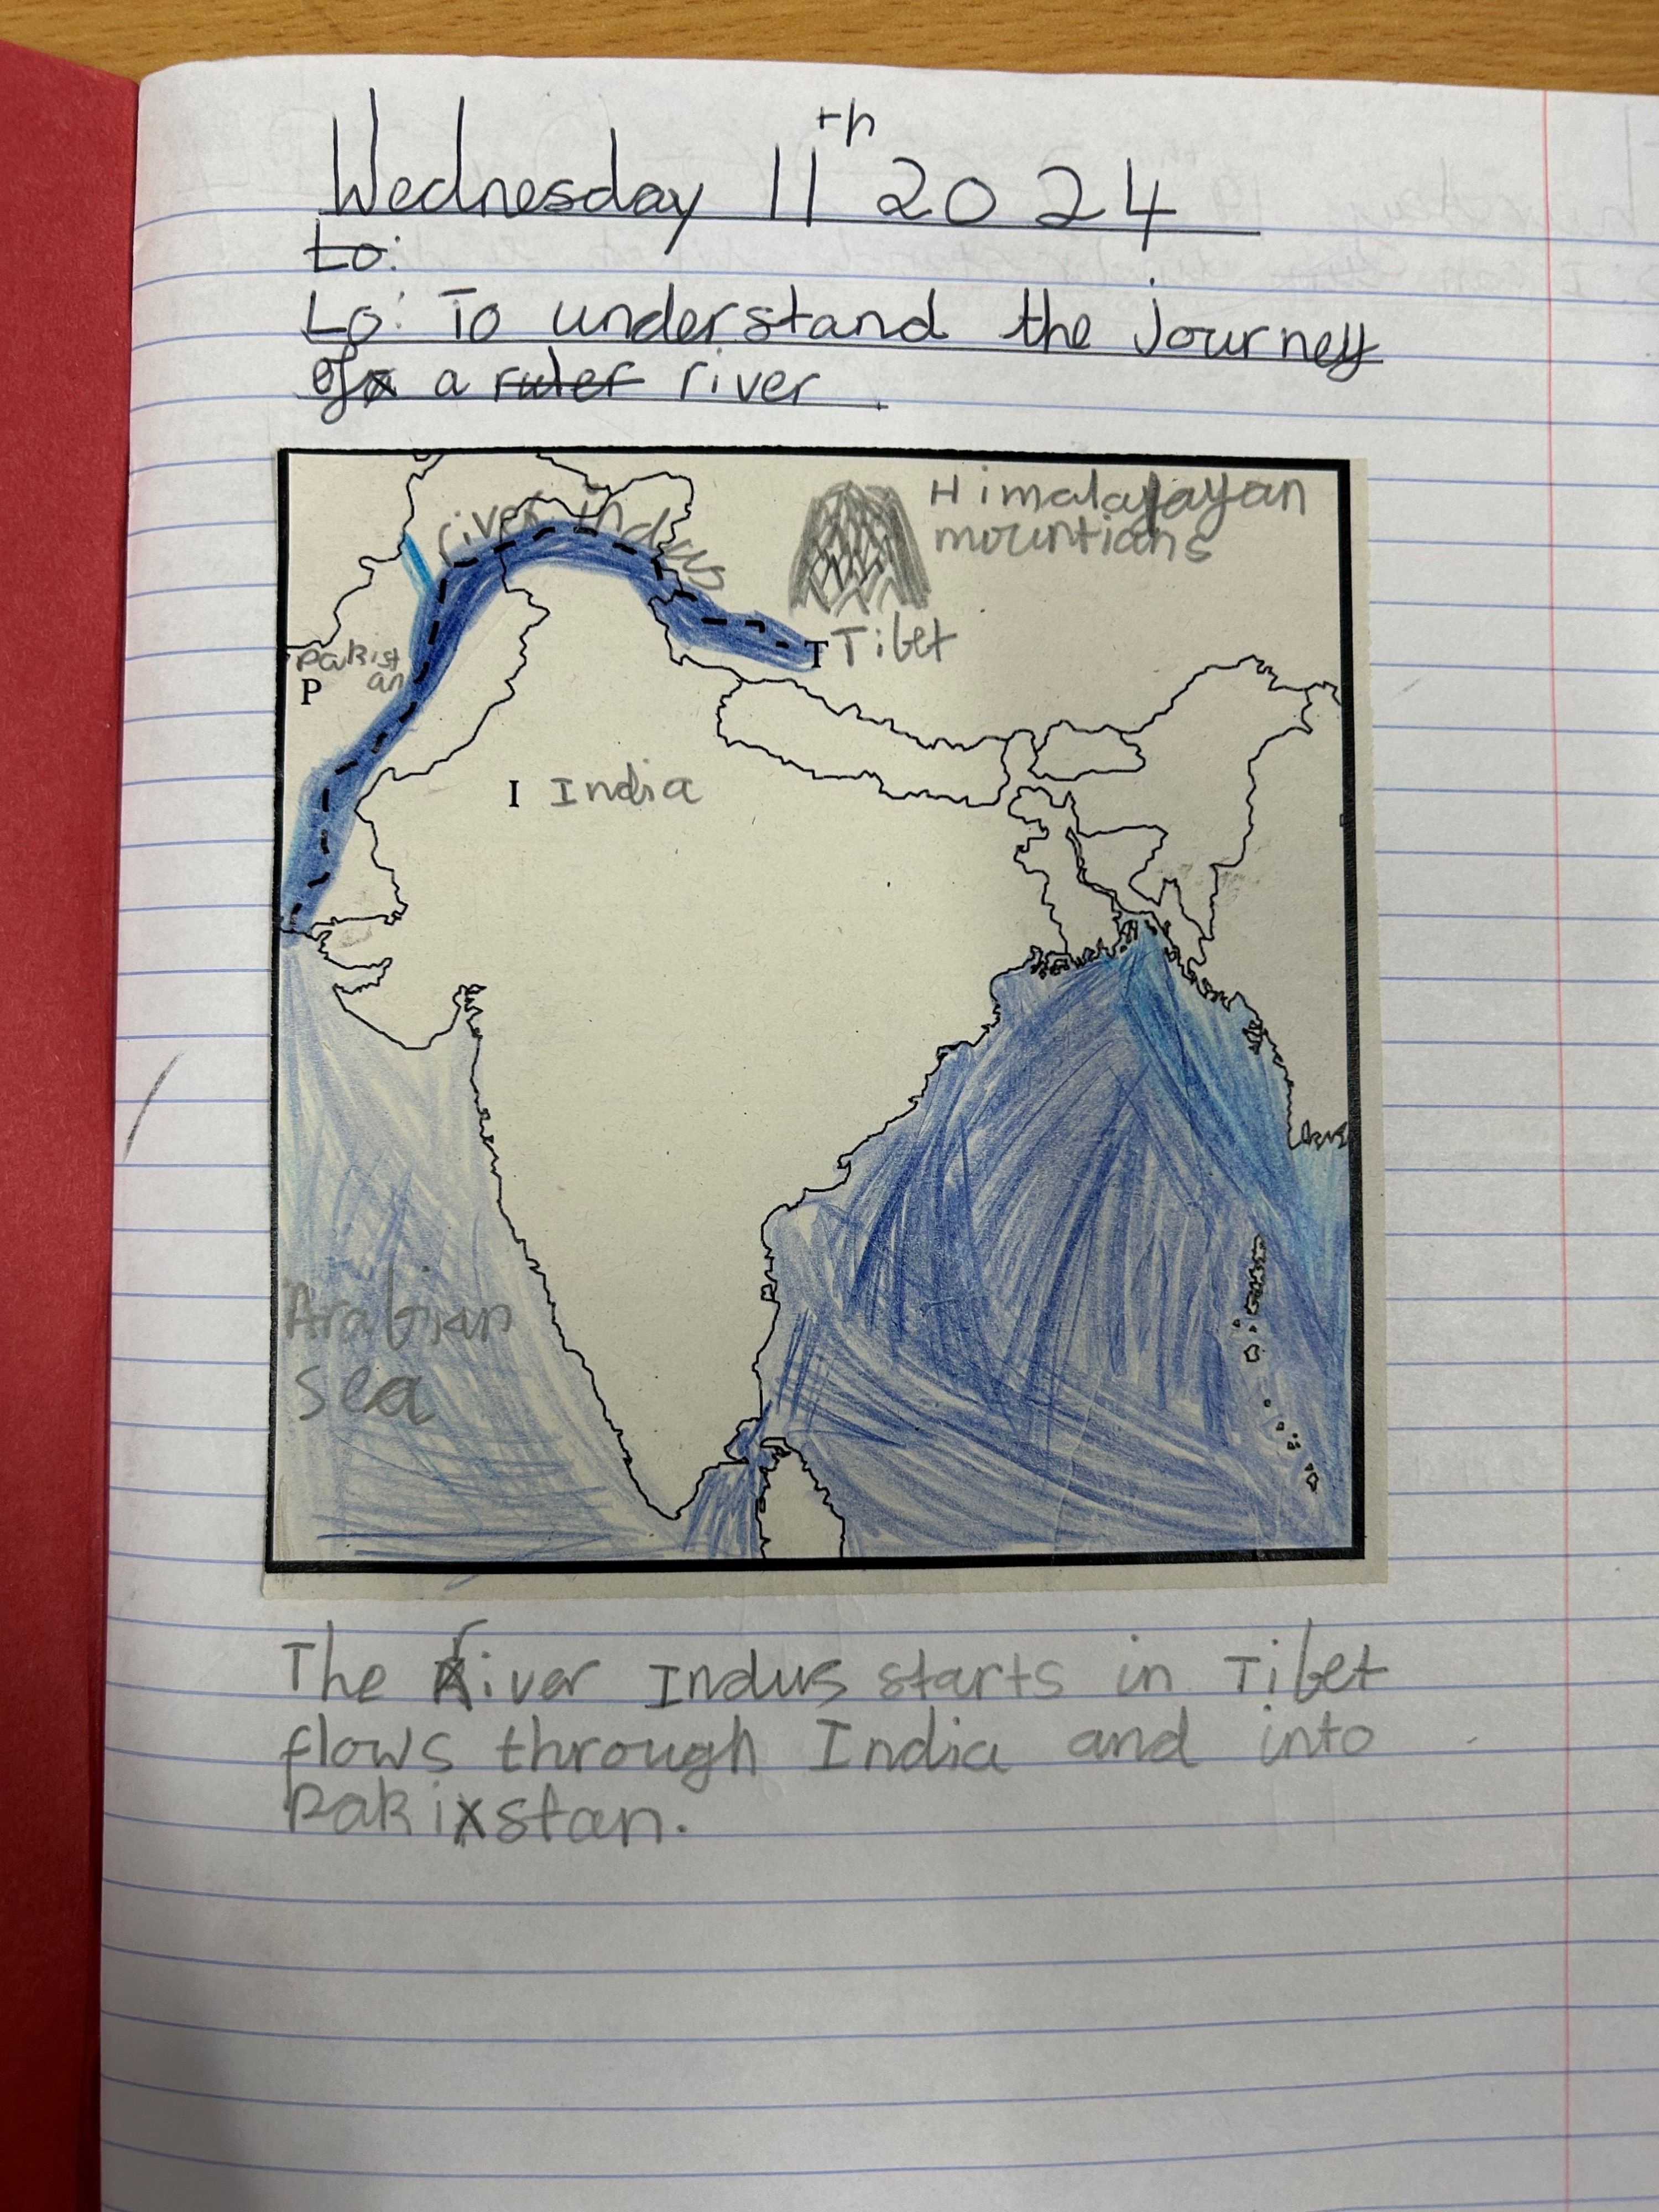 Wednesday 11th 2024
Lo:
Lo: To understand the journey
of a ruler river.
river indus
Himalayayan
mountians
T Tibet
Pakist
an
P
I India
Arabian
sea
The river Indus starts in Tibet
flows through India and into
Pakistan.